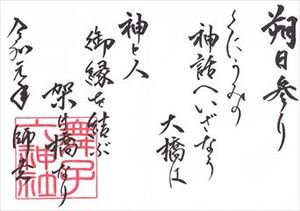 朔日参り
くにうみの
神話へいざなう
大橋は
神と人
御縁を結ぶ
架け橋なり
令和元年 師走
舞子
六神社